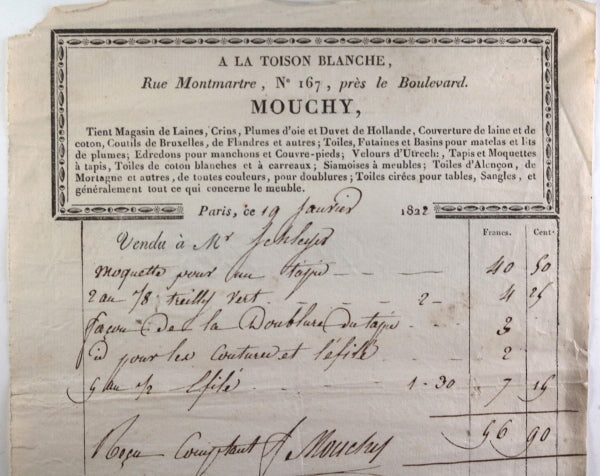 A LA TOISON BLANCHE,
Rue Montmartre, N° 167, près le Boulevard.
MOUCHY,
Tient Magasin de Laines, Crins, Plumes d'oie et Duvet de Hollande, Couverture de laine et de
coton, Coutils de Bruxelles, de Flandres et autres; Toiles, Futaines et Basins pour matelas et lits
de plumes; Edredons pour manchons et Couvre-pieds; Velours d'Utrecht, Tapis et Moquettes
à tapis, Toiles de coton blanches et à carreaux; Siamoises à meubles; Toiles d'Alençon, de
Mortagne et autres, de toutes couleurs, pour doublures; Toiles cirées pour tables, Sangles, et
généralement tout ce qui concerne le meuble.
Paris, ce 19 Janvier 1822
Francs. Cent.
Vendu à Mr
moquette pour un tapis 40 50
2 au 7/8 treilly vert 2 - 4 25
façon de la Doublure du tapis 3
id pour les coutures et l'éfilé 2
5 au 1/2 Efilé 1-30 7 15
56 90
Reçu Comptant Mouchy